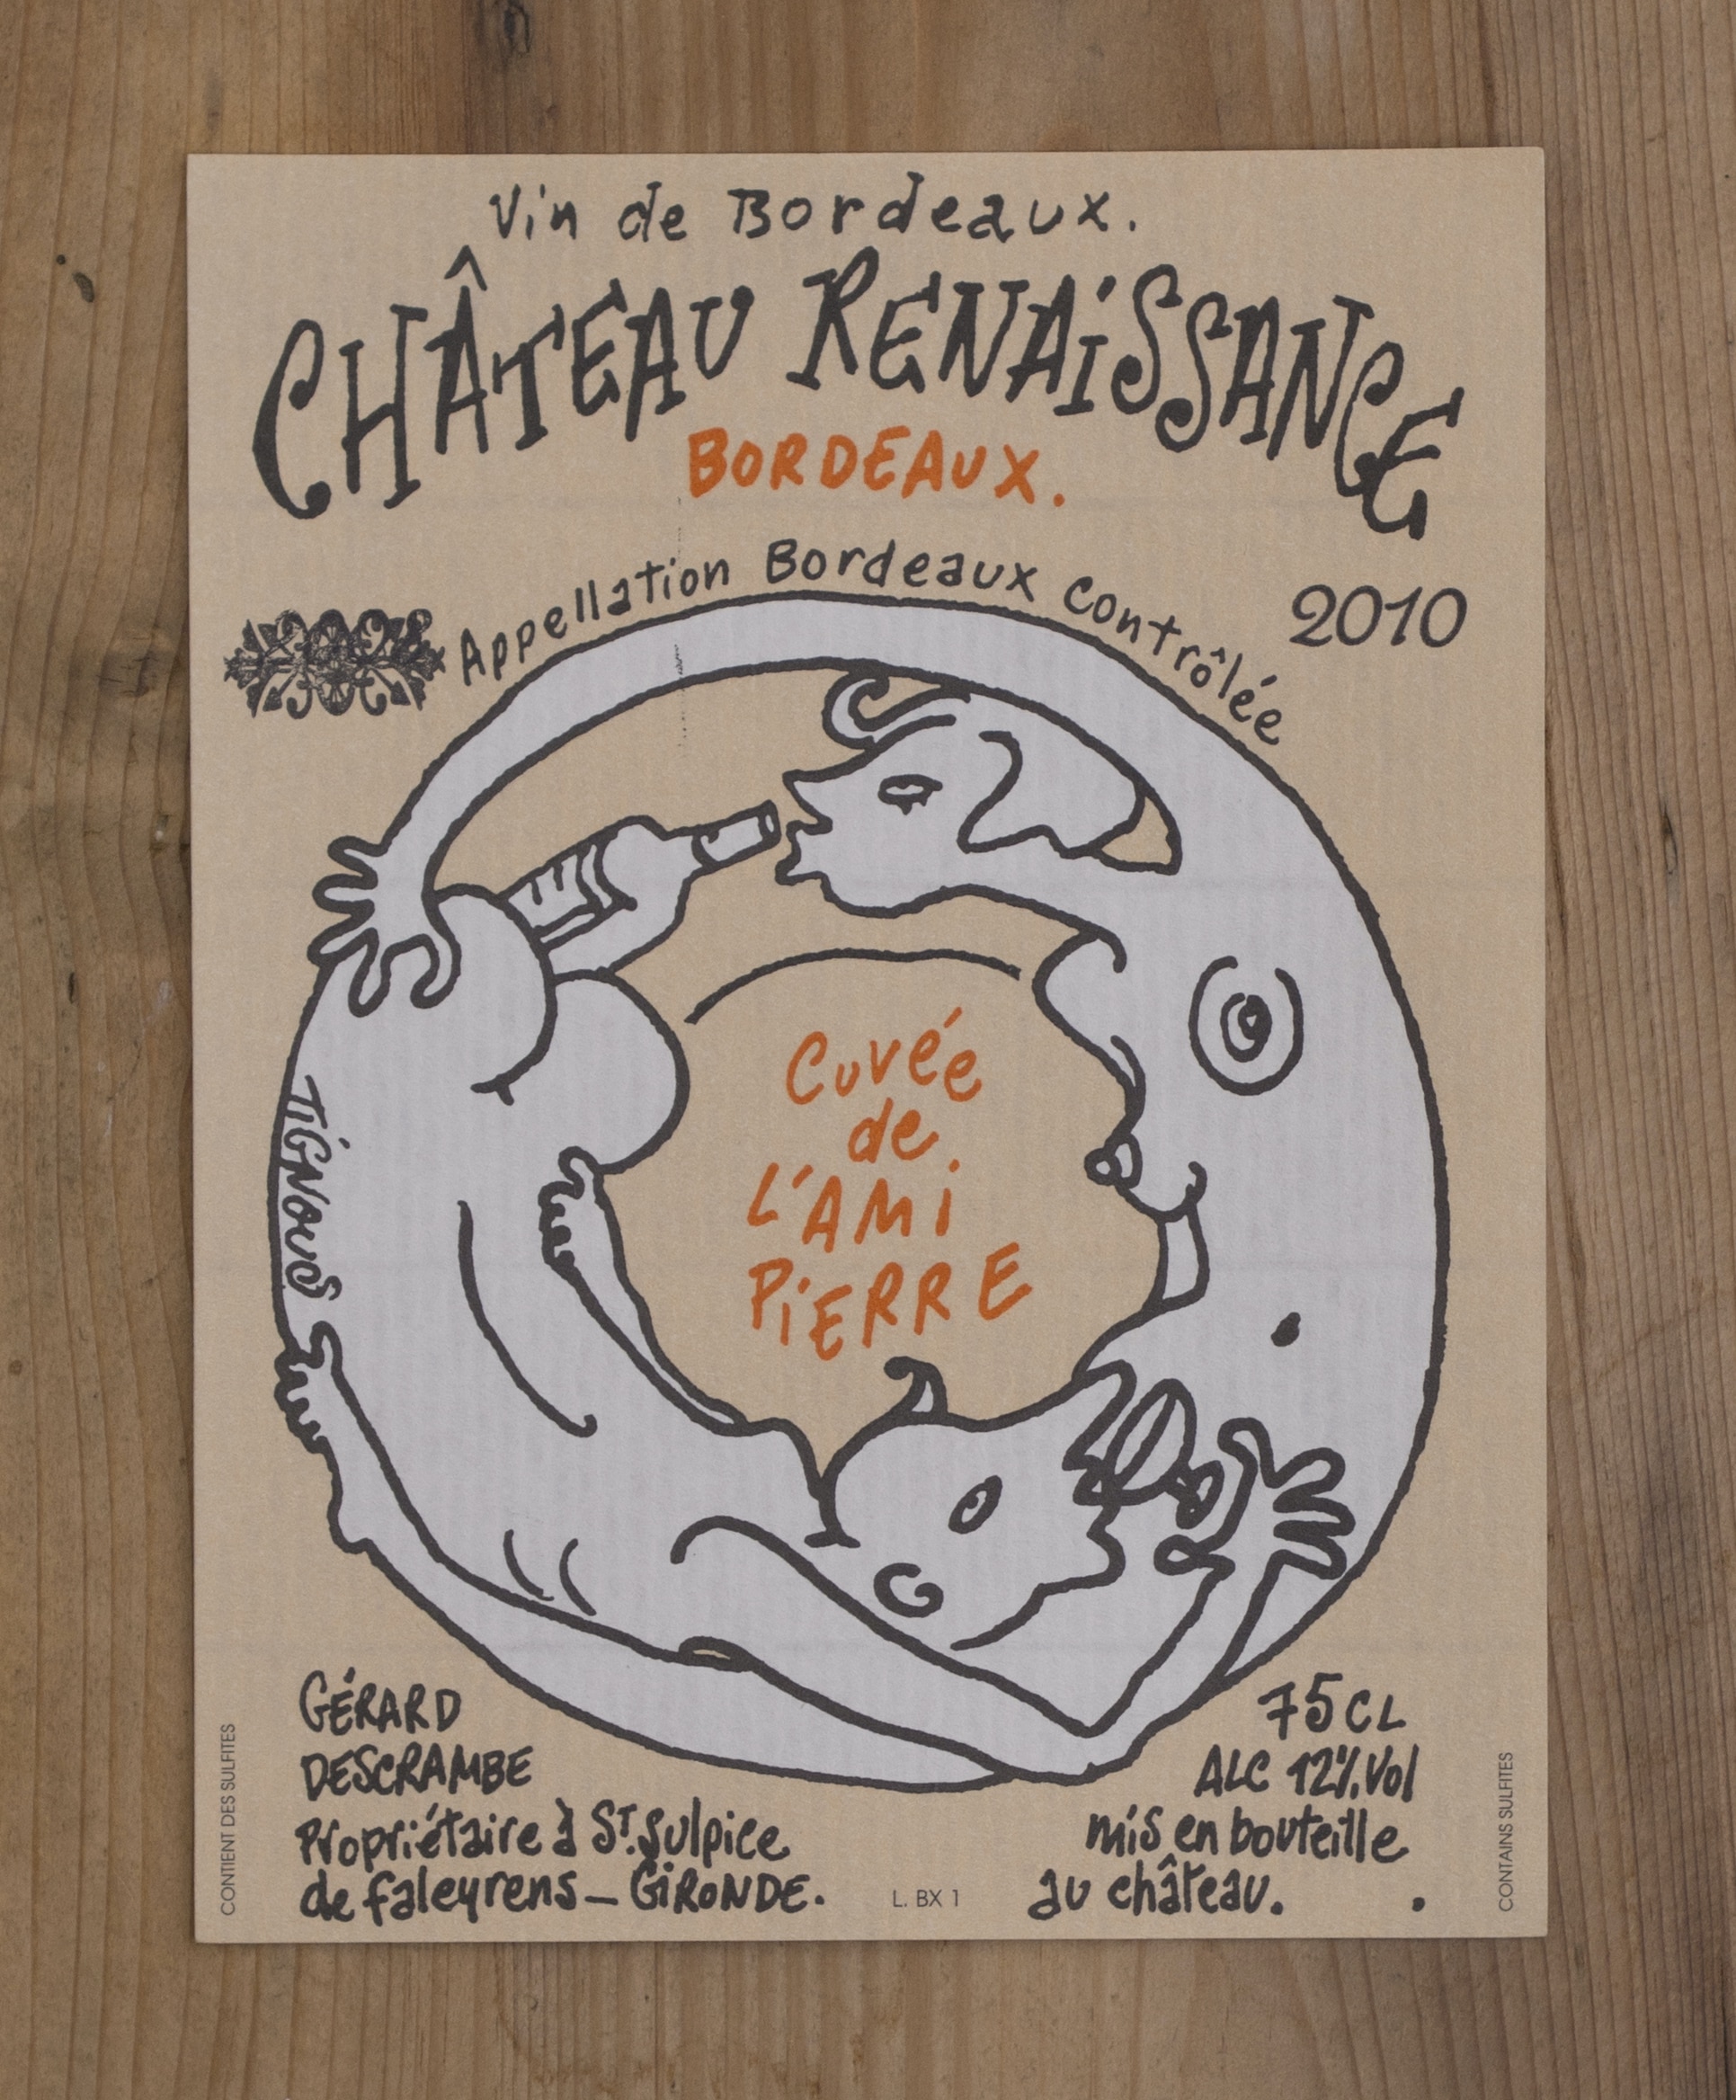 Vin de Bordeaux.
CHÂTEAU RENAiSSANCE
BORDEAUX.
Appellation Bordeaux contrôlée
2010
Cuvée
de
L'AMi
PiERRE
TiGNOUS
GÉRARD
DESCRAMBE
Propriétaire à ST.Sulpice
de faleyrens_GiRONDE.
75CL
ALC 12%.Vol
mis en bouteille
au château.
L. BX 1
CONTIENT DES SULFITES
CONTAINS SULFITES